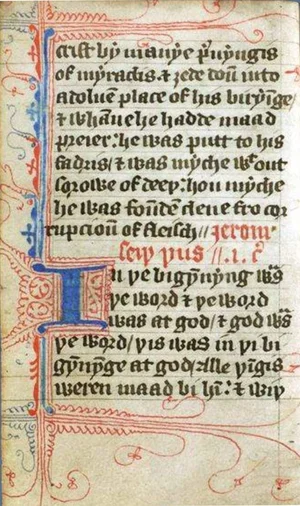 crist by manye p'uyngis
of myraclis. & ȝede doū into
a doluen place of his biryinge/
& whāne he hadde maad
preier: he was putt to his
fadris/ & was myche wtout
sorowe of deeþ: hou myche
he was foūden clene fro cor
rupcioū of fleisch // Jerom
seiþ þus // .i. c
In þe bigynnyng was
þe word & þe word
was at god/ & god was
þe word/ þis was in þe bi
gynnynge at god/ alle þīgis
weren maad bi hī: & wiþ